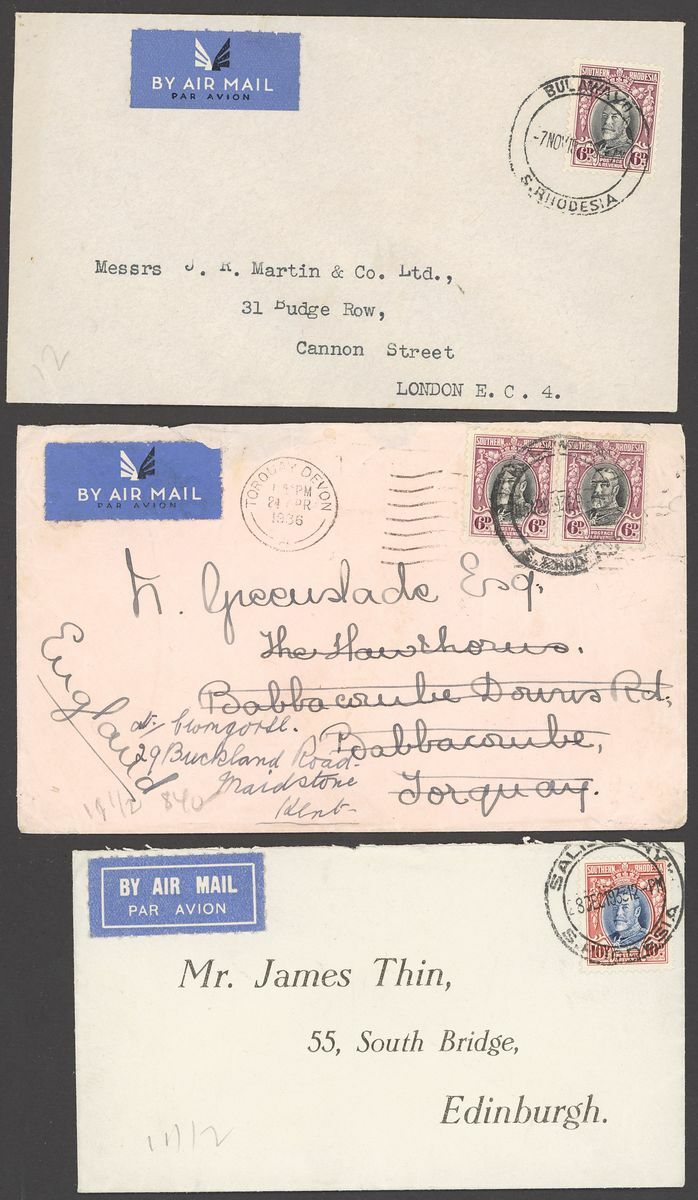 BY AIR MAIL
PAR AVION
SOUTHERN RHODESIA
6D POSTAGE & REVENUE 6D
BULAWAYO
-7 NOV
S. RHODESIA
Messrs J. R. Martin & Co. Ltd.,
31 Budge Row,
Cannon Street
LONDON E. C. 4.
12
BY AIR MAIL
PAR AVION
TORQUAY DEVON
PM
1936
SOUTHERN RHODESIA
6D POSTAGE & REVENUE 6D
SOUTHERN RHODESIA
6D POSTAGE & REVENUE 6D
Greenslade Esq.
The Hawthorns.
Babbacombe Downs Rd,
Babbacombe,
Torquay.
England
29 Buckland Road
Maidstone
Kent
BY AIR MAIL
PAR AVION
SOUTHERN RHODESIA
10D
SALISBURY
PM
Mr. James Thin,
55, South Bridge,
Edinburgh.